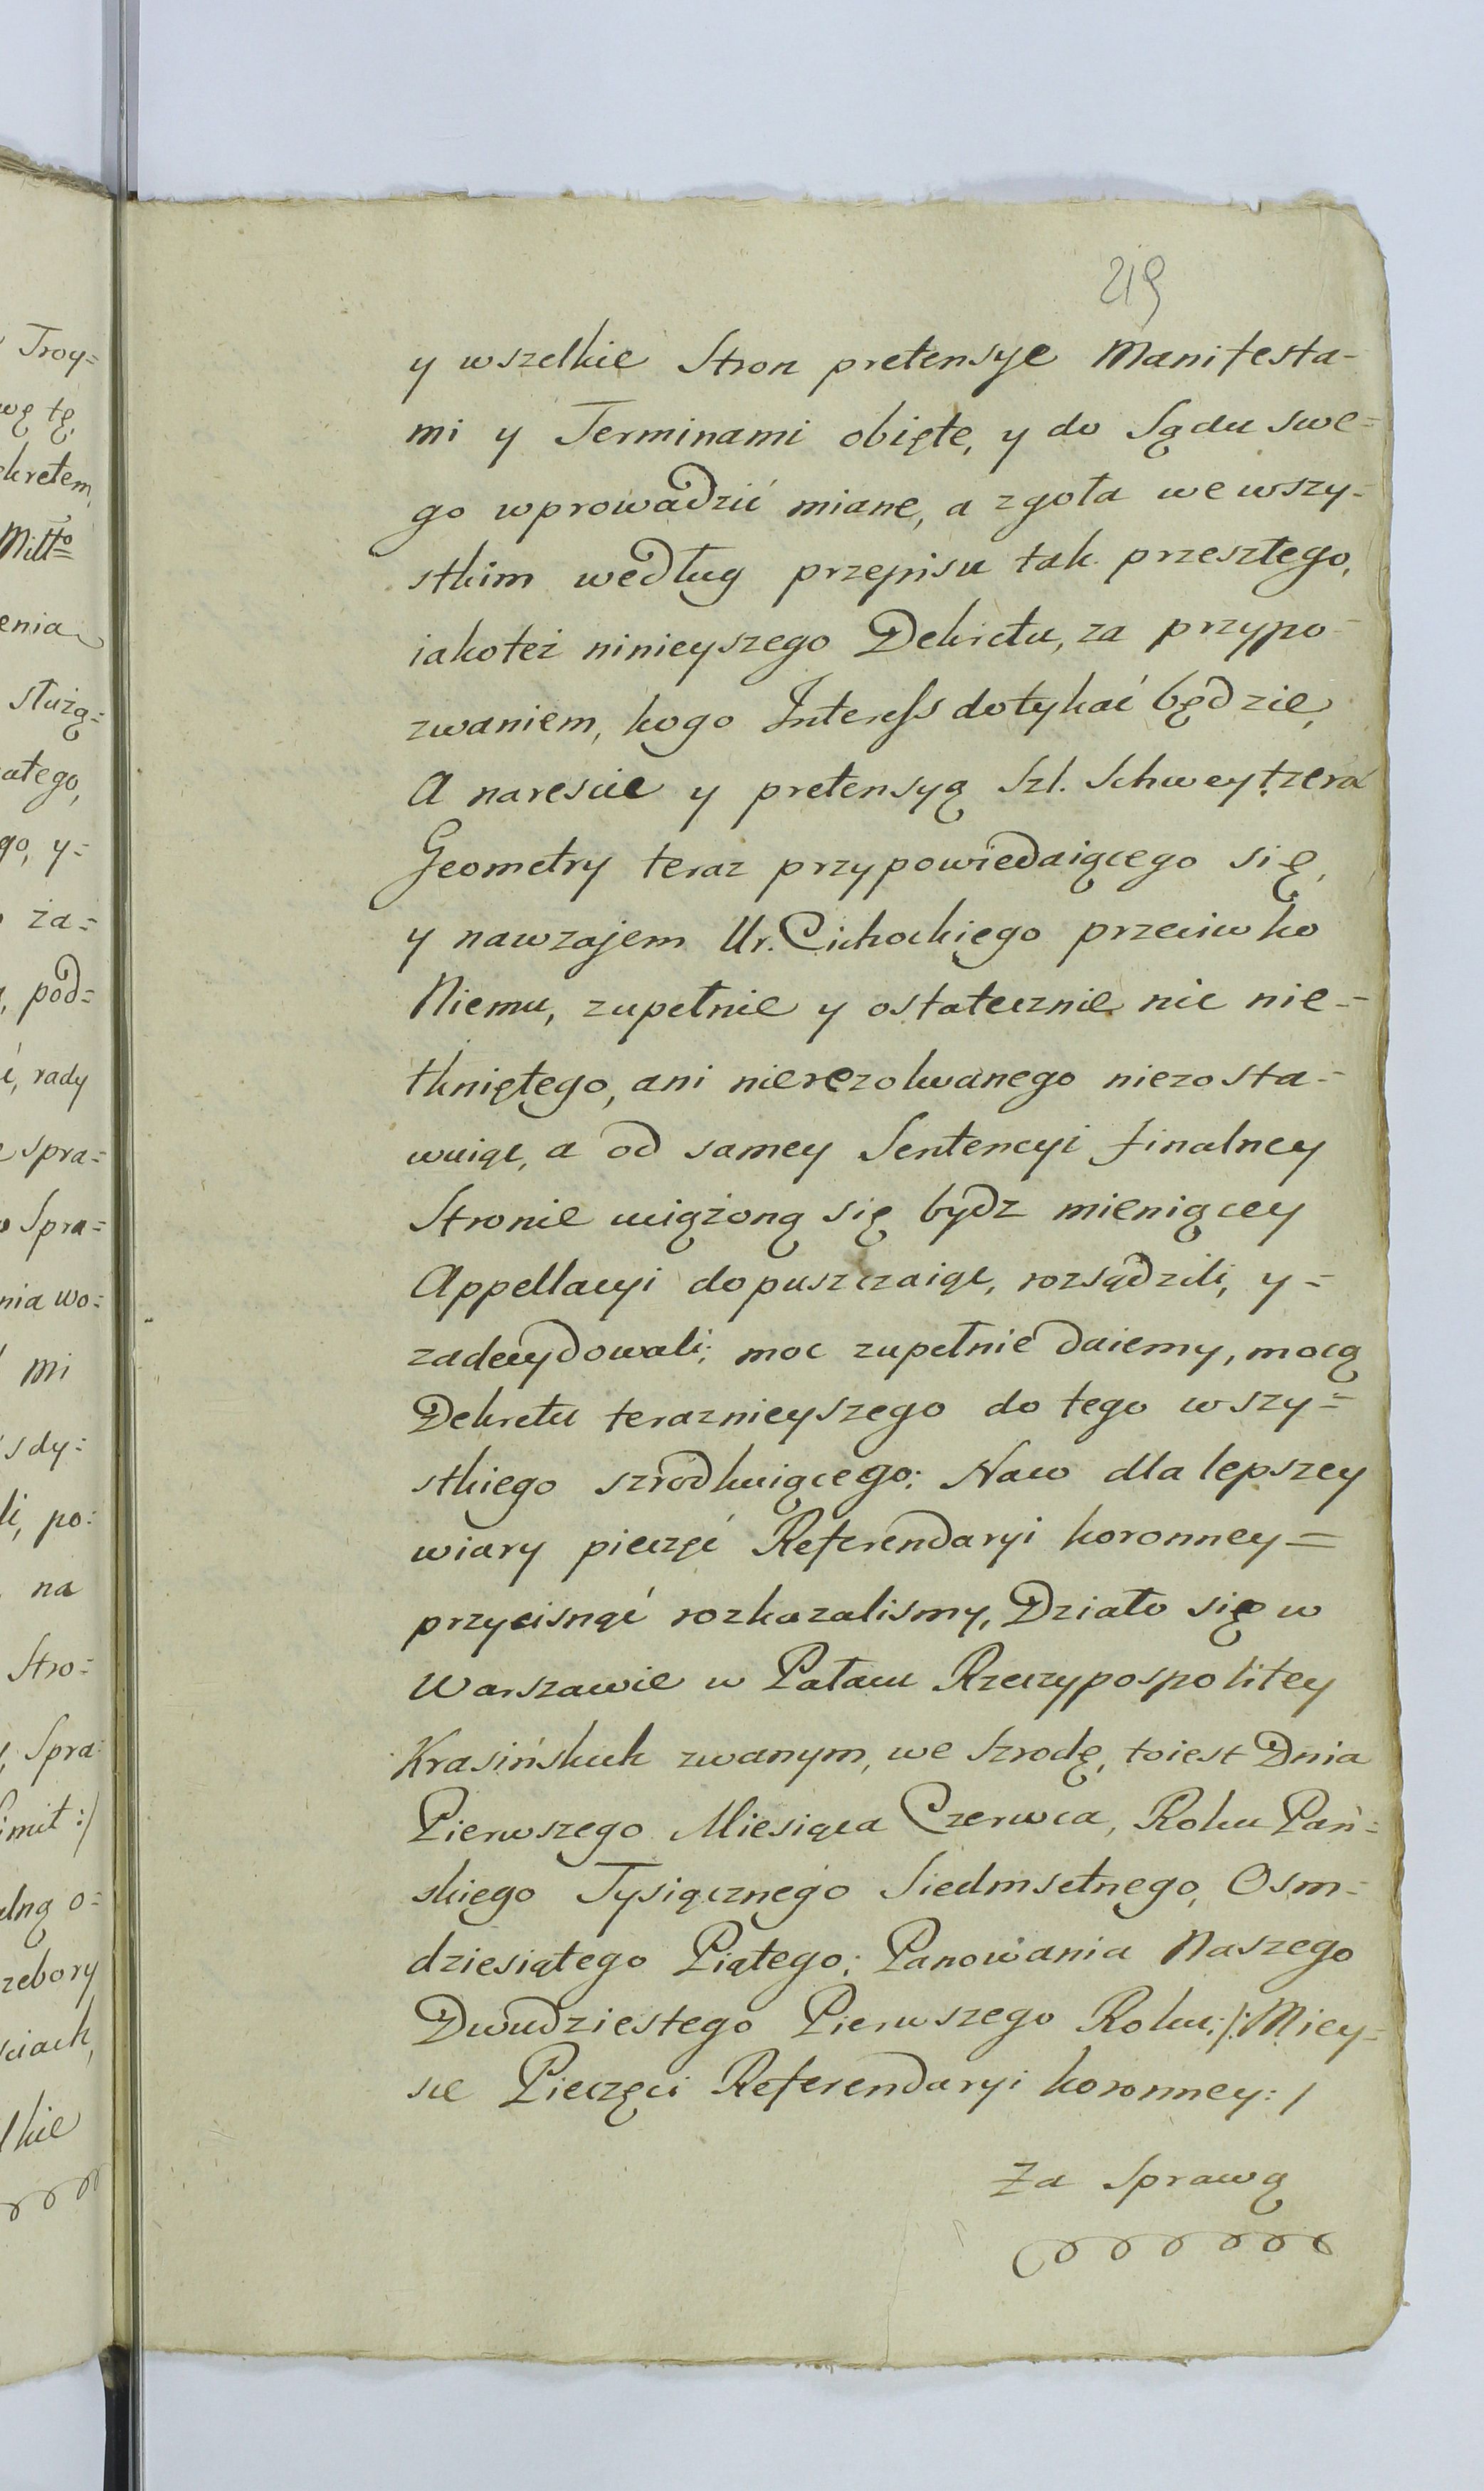 219
y wszelkie Stron pretensye Manifesta-
mi y Terminami obięte, y do Sądu swe=
go wprowadzić miane, a zgoła we wszy-
stkim według przepisu tak przeszłego,
iakoteż ninieyszego Dekretu, za przypo-
zwaniem, kogo Interess dotykać będzie,
A narescie y pretensyą Szl. Schweytzera
Geometry teraz przypowiedaiącego się,
y nawzajem Ur. Cichockiego przeciwko
Niemu, zupełnie y ostatecznie nic nie-
tkniętego, ani nierezolwanego niezosta-
wuiąc, a od samey Sentencyi finalney
Stronie uciążoną się bydz mieniącey
Appellacyi dopuszczaiąc, rozsądzili, y=
zadecydowali; moc zupełnie daiemy, mocą
Dekretu teraznieyszego do tego wszy=
stkiego szrodkuiącego; Naco dla lepszey
wiary pieczęć Referendaryi koronney=
przycisnąć rozkazalismy, Działo się w
Warszawie w Pałacu Rzeczypospolitey
Krasińskich zwanym, we Szrodę, toiest Dnia
Pierwszego Miesiąca Czerwca, Roku Pań=
skiego Tysiącznego Siedmsetnego, Osm-
dziesiątego Piątego; Panowania Naszego
Dwudziestego Pierwszego Roku; /: Miey=
sce Pieczęci Referendaryi koronney: /
Za Sprawą
Troy=
tę
Mitto
enia
służą=
ałego,
go, y=
ża=
pod=
rady
spra=
Spra=
nia wo=
mi
sdy=
li, po=
na
Stro=
Spra=
imit:/
alną o=
zebory
kie